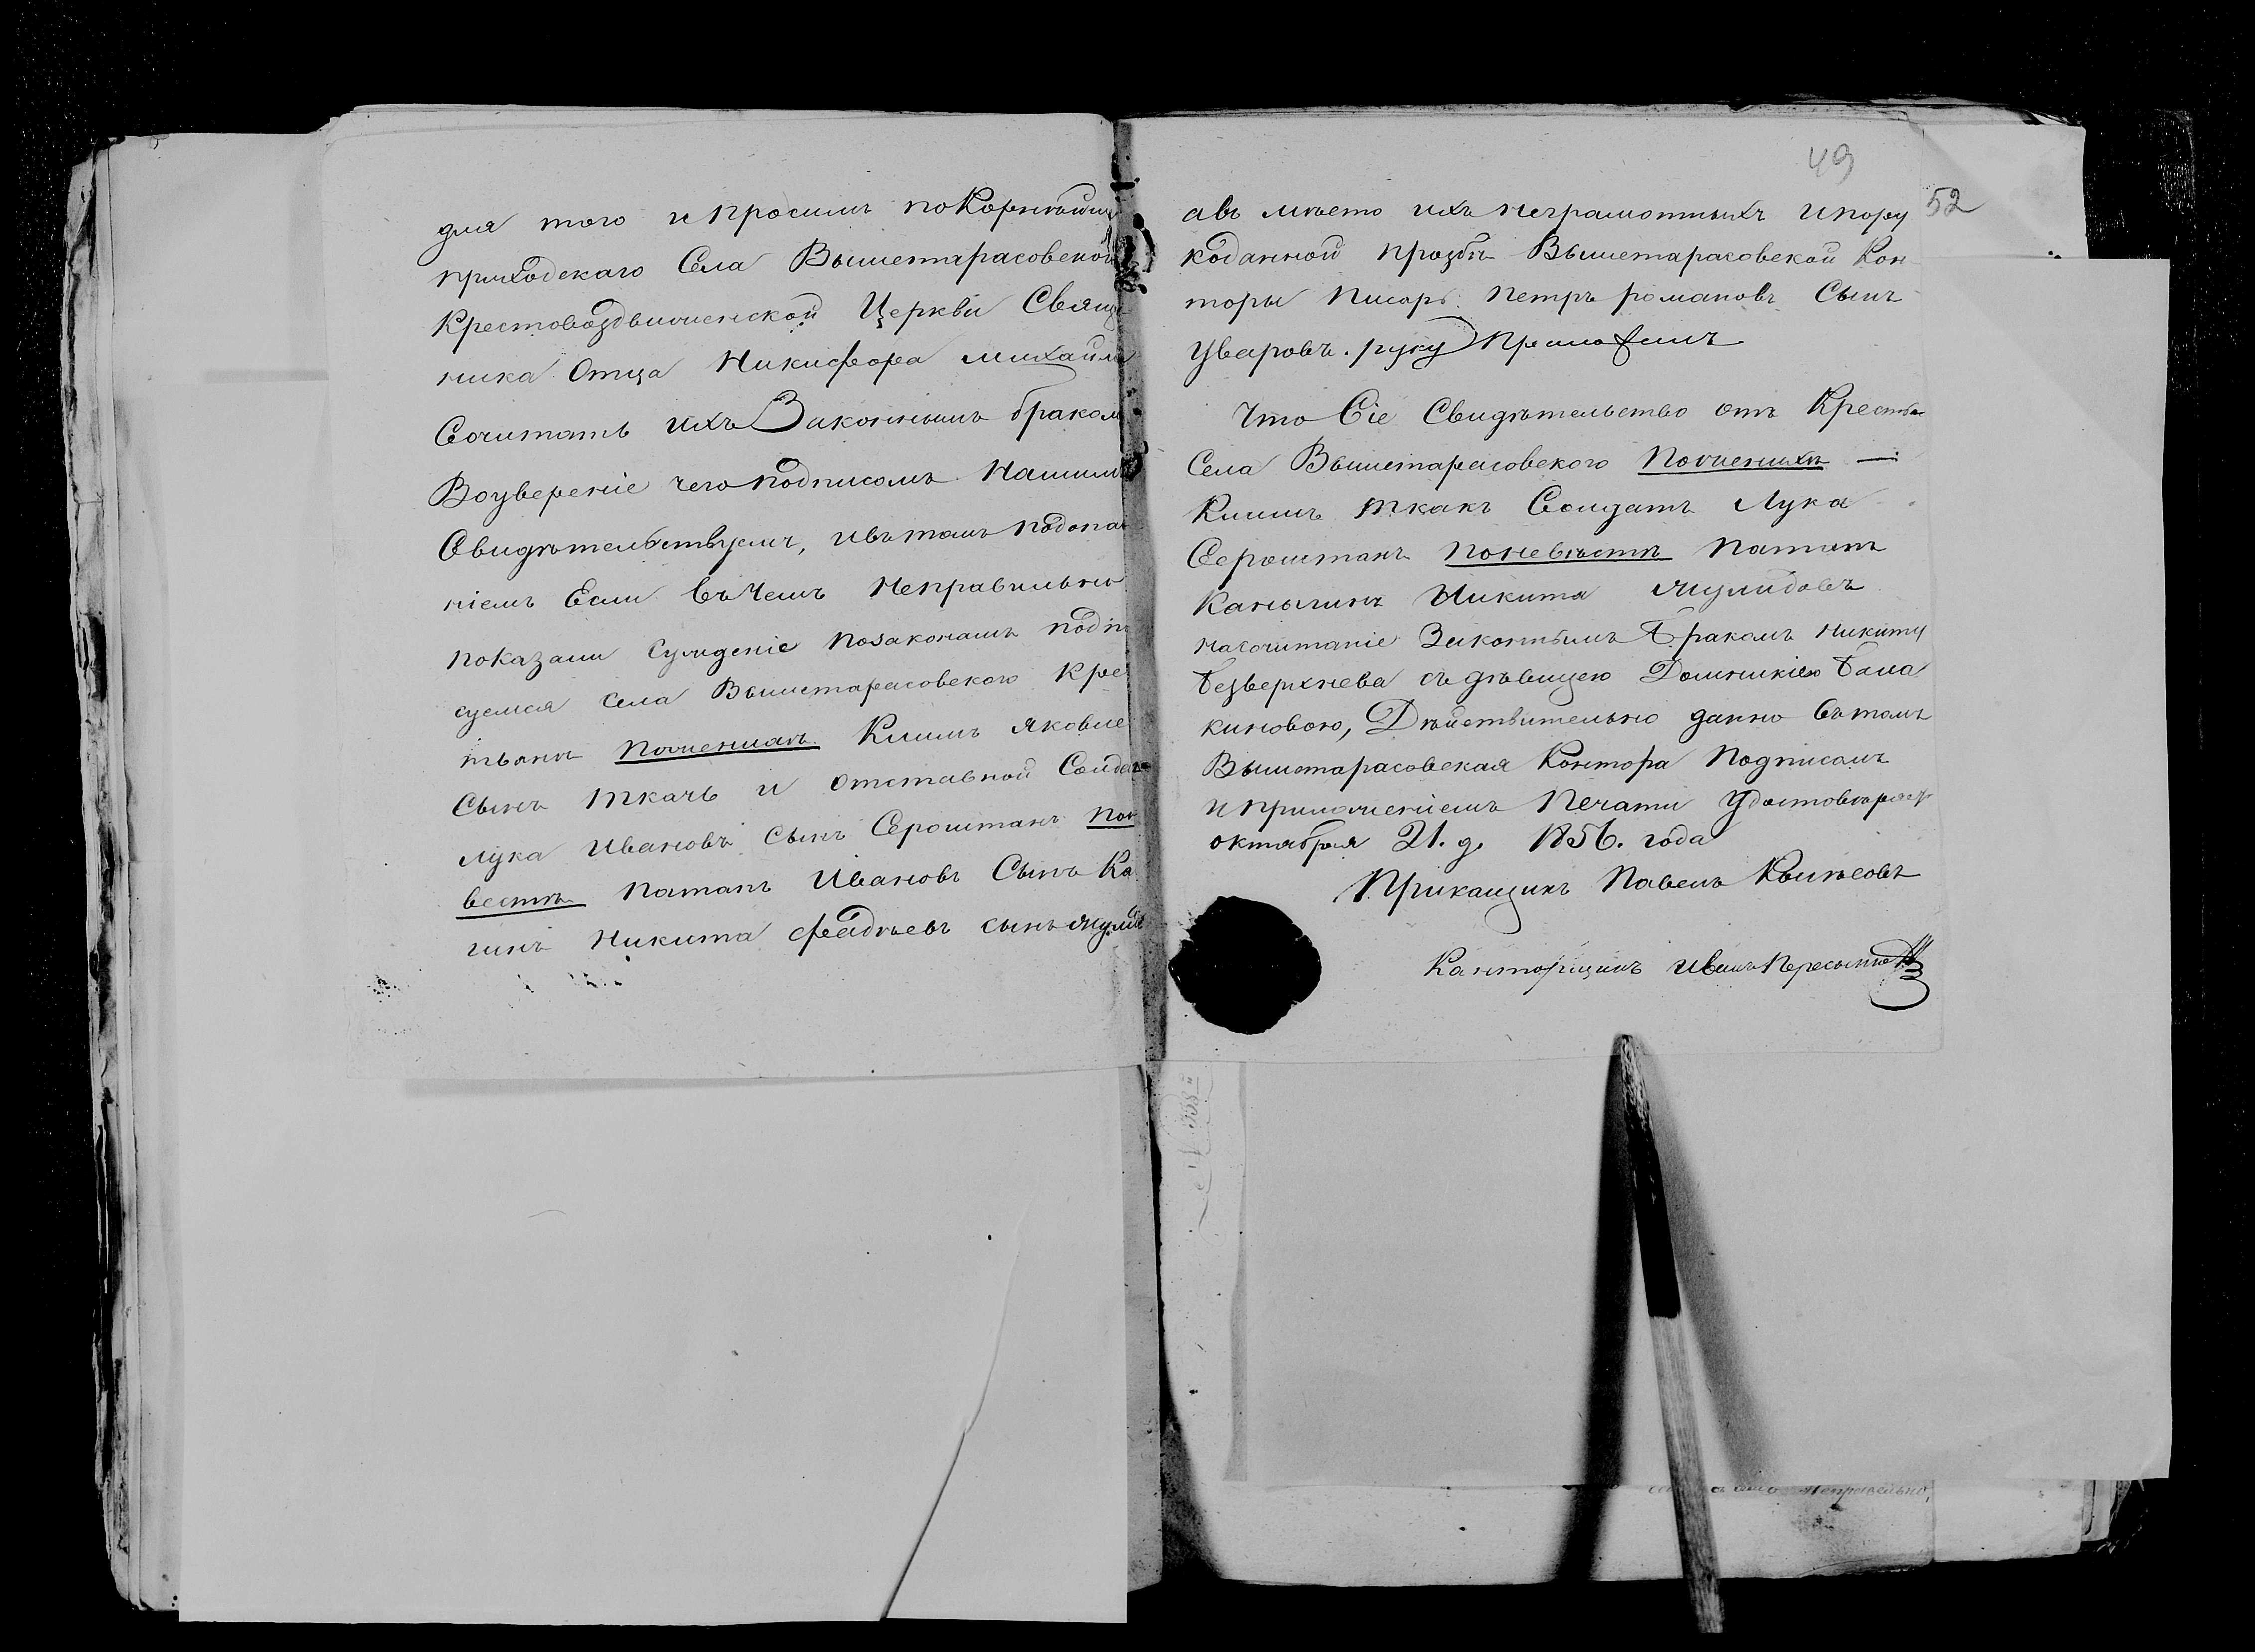 для того и просимъ покорнѣйше
приходскаго Села Вышетарасовской
Крестовоздвиженской Церкви Свяще
ника Отца Никифора Михайл
Сочитать ихъ Законнымъ бракомъ
Воуверение чего подписомъ Нашимъ
Свидѣтельствуемъ, ивътомъ подопа
ніемъ Если въ чемъ Неправильно
показали Сужденіе позаконамъ подпи
суемся села Вышетарасовского Кре
тьяне поженихѣ Климъ Яковле
Сынъ Ткачь и Отставной Солдатъ
Лука Ивановъ Сынъ Сероштанъ поне
вестѣ Патапъ Ивановъ Сынъ Ка
гинъ Никита Фадѣевъ сынъ Жулид
49
52
авъ мѣсто ихъ неграмотныхъ ипору
коданной прозбѣ Вышетарасовской Кон
торы Писарь Петръ романовъ Сынъ
Уваровъ. руку Приложилъ
Что Сіе Свидѣтельство отъ Крестья
Села Вышетарасовского Поженихѣ —
Климъ Ткачъ Солдатъ Лука
Сероштанъ Поневѣстѣ Патапъ
Каныгинъ Никита Жулидовъ
насочитаніе Законнымъ Бракомъ Никиту
Безверхнева съ дѣвицею Домникіею Бала
киновою, Дѣйствительно данно Вътомъ
Вышетарасовская Контора Подписомъ
и приложеніемъ Печати Удостовѣряетъ
октября 21. д. 1856. года
Прикащикъ Павелъ
Канторщикъ Иванъ